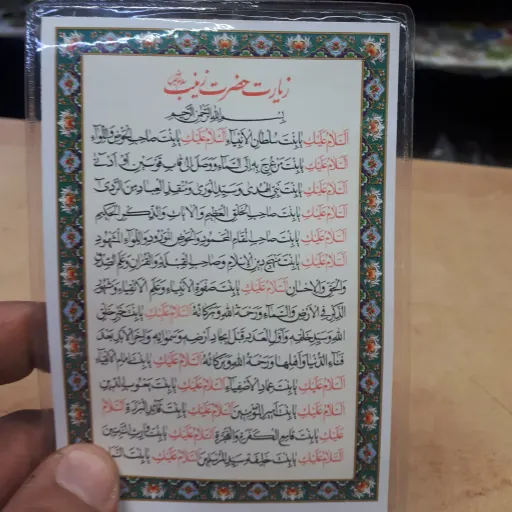 زیارت حضرت زینب سلام‌الله‌علیها
بسم الله الرحمن الرحیم
السلام علیك یا بنت سلطان الأنبیاء السلام علیك یا بنت صاحب الحوض واللواء
السلام علیك یا بنت من عرج به إلی السماء ووصل إلی مقام قاب قوسین أو أدنی
السلام علیك یا بنت نبی الهدی وسید الوری ومنقذ العباد من الردی
السلام علیك یا بنت صاحب الخلق العظیم والآیات والذکر الحکیم
السلام علیك یا بنت صاحب المقام المحمود والحوض المورود واللواء المشهود
السلام علیك یا بنت منهج دین الإسلام وصاحب القبلة والقرآن وعلم الصدق
والحق والإحسان السلام علیك یا بنت صفوة الأنبیاء وعلم الأتقیاء ومشهور
الذکر فی الأرض والسماء ورحمة الله وبرکاته السلام علیك یا بنت خیر خلق
الله وسید خلقه وأول العدد قبل إیجاد أرضه وسماواته وآخر الأبد بعد
فناء الدنیا وأهلها ورحمة الله وبرکاته السلام علیك یا بنت إمام الأتقیاء
السلام علیك یا بنت عماد الأصفیاء السلام علیك یا بنت یعسوب الدین
السلام علیك یا بنت أمیر المؤمنین السلام علیك یا بنت قائد البررة السلام
علیك یا بنت قامع الکفرة والفجرة السلام علیك یا بنت وارث النبیین
السلام علیك یا بنت خلیفة سید المرسلین السلام علیك یا بنت